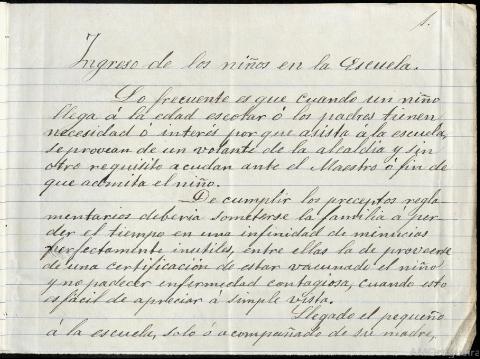 1.
Ingreso de los niños en la Escuela.
Lo frecuente es que cuando un niño
llega á la edad escolar ó los padres tienen
necesidad ó interés por que asista á la escuela,
se provean de un volante de la alcaldia y sin
otro requisito acudan ante el Maestro ó fin de
que admita el niño.
De cumplir los preceptos regla-
mentarios deberia someterse la familia á per-
der el tiempo en una infinidad de minucias
perfectamente inutiles, entre ellas la de proveerse
de una certificación de estar vacunado el niño
y no padecer enfermedad contagiosa, cuando esto
es fácil de apreciar á simple vista.
Llegado el pequeño
á la escuela, solo ó acompañado de su madre,